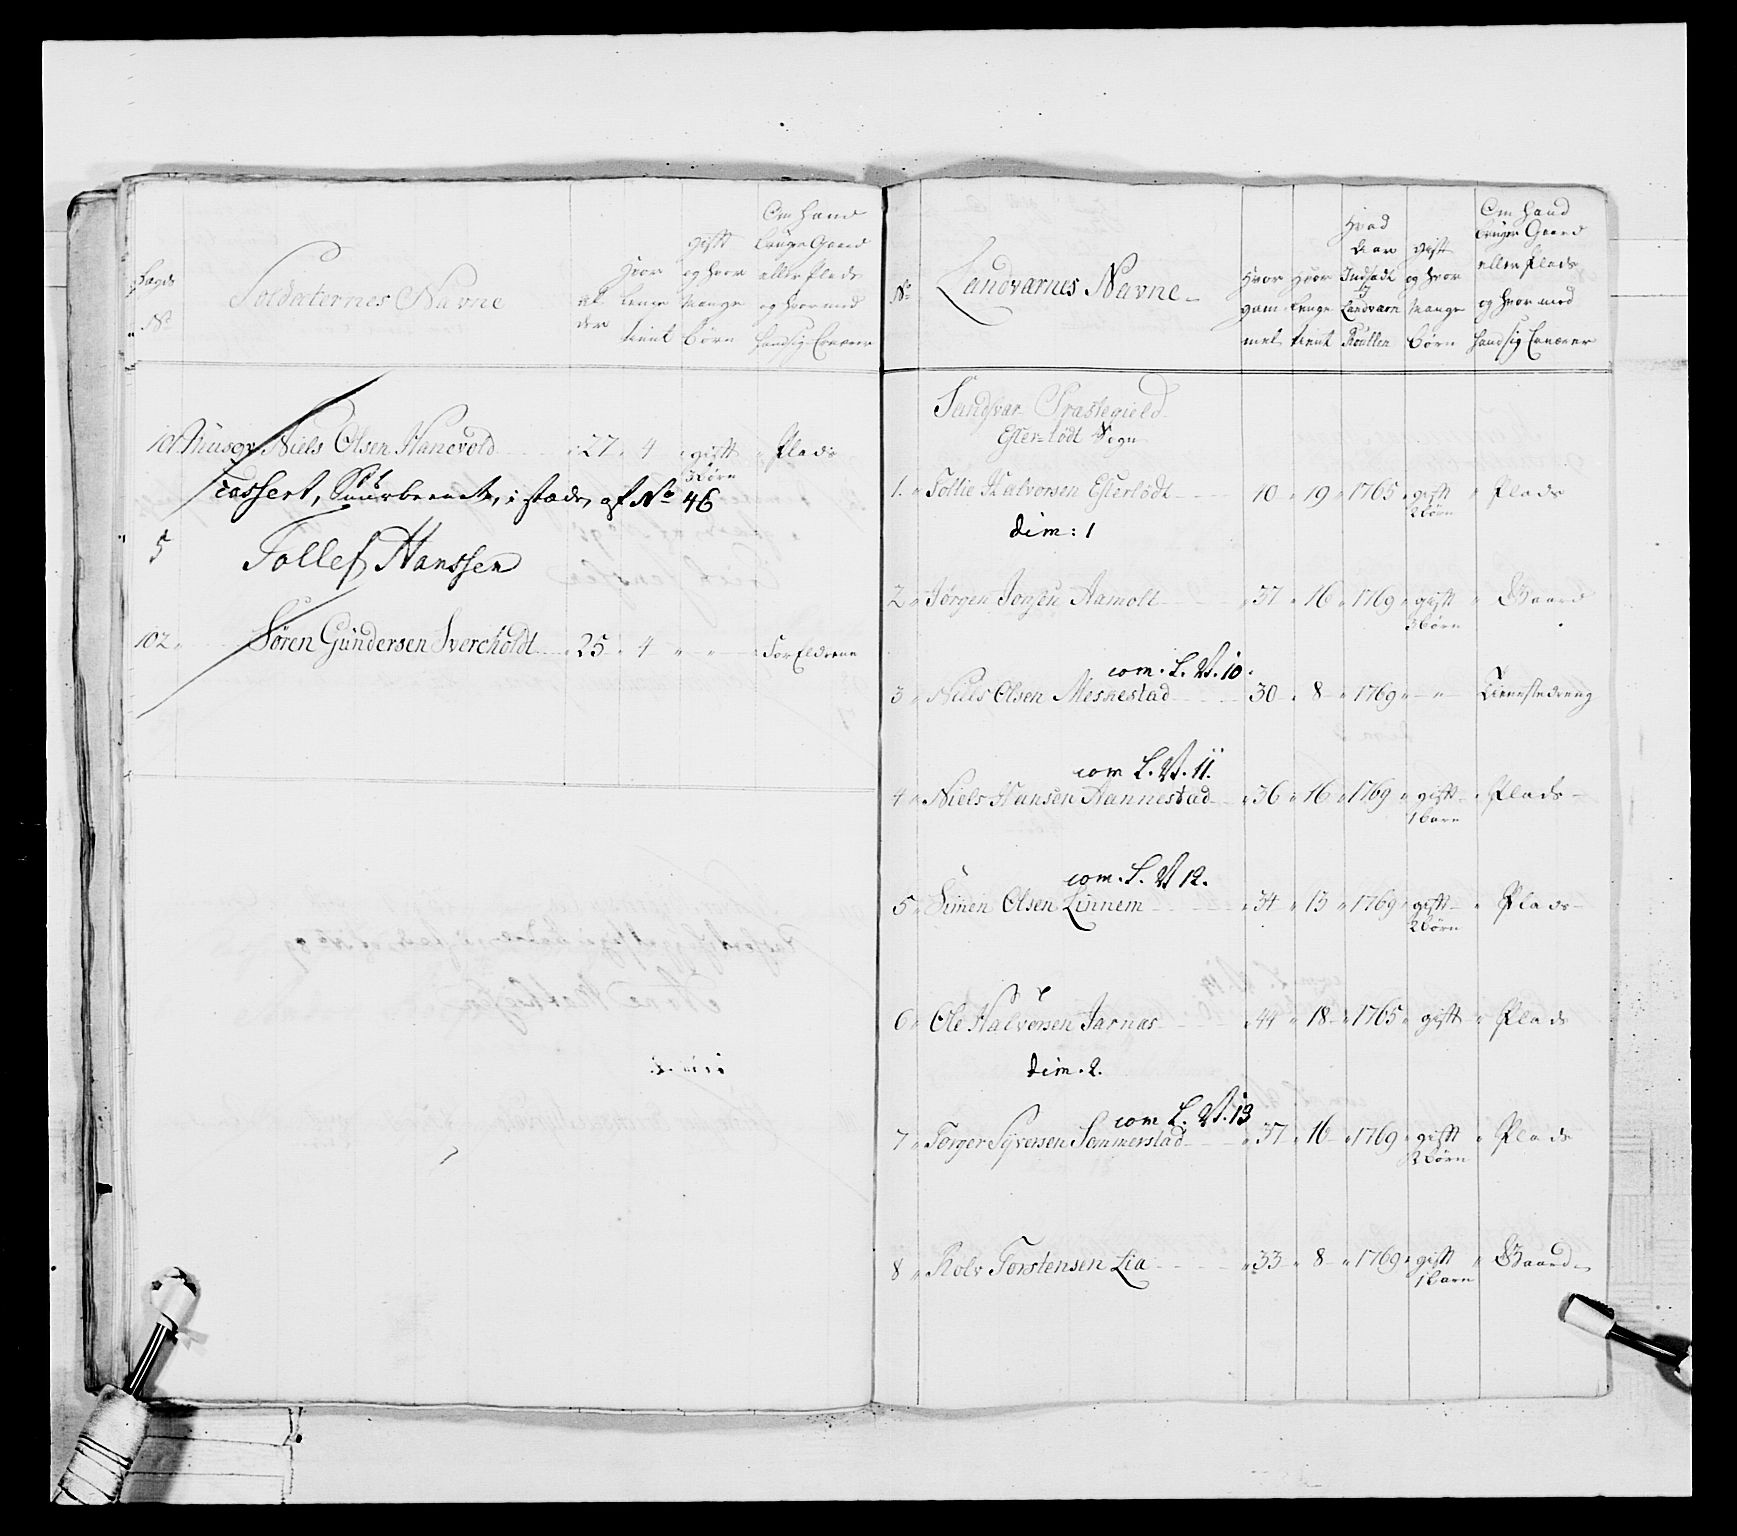 Soldaternes Navne
No
Hvor
lenge
tient
gift
og hvor
mange
børn
Om hand
bruger Gaard
eller Plads
og hvor med
hand sig Ernærer
101 Musqr Niels Olsen Hanevold 27 4 gift Plads
3 børn
Cassert, i stæde, af No 46
5 Tollef Hanssen
102 Søren Gundersen Svercholdt 25 4 " " Forældrene
No
Landvarnes Navne
Hvor
gam
mel
Hvor
lenge
tient
Hvad
Aar
Indsadt
i
Landvarn
Roullen
gift
og hvor
mange
børn
Om hand
bruger Gaard
eller Plads
og hvor med
hand sig Ernærer
Sandsvær Præstegield
Efterlødt Sogn
1. Tollie Halvorsen Efterlödt 19 1765 gift Plads
2 børn
dim: 1
2 Jørgen Jonsen Aamolt 37 16 1769 gift Gaard
3 børn
com. L. V. 10.
3 Niels Olsen Meshestad 30 8 1769 " Tienestedreng
com L. V. 11.
4 Niels Hansen Hannestad 36 16 1769 gift Plads
1 barn
com. L. V 12.
5 Simen Olsen Linnem 34 13 1769 gift Plads
2 børn
6 Ole Halvorsen Jarnas 44 18 1765 gift Plads
dim. 2.
com L. V. 13
7 Torger Syversen Semmerstad 37 16 1769 gift Plads
2 børn
8 Rolv Torstensen Lia 33 8 1769 gift Gaard
1 barn